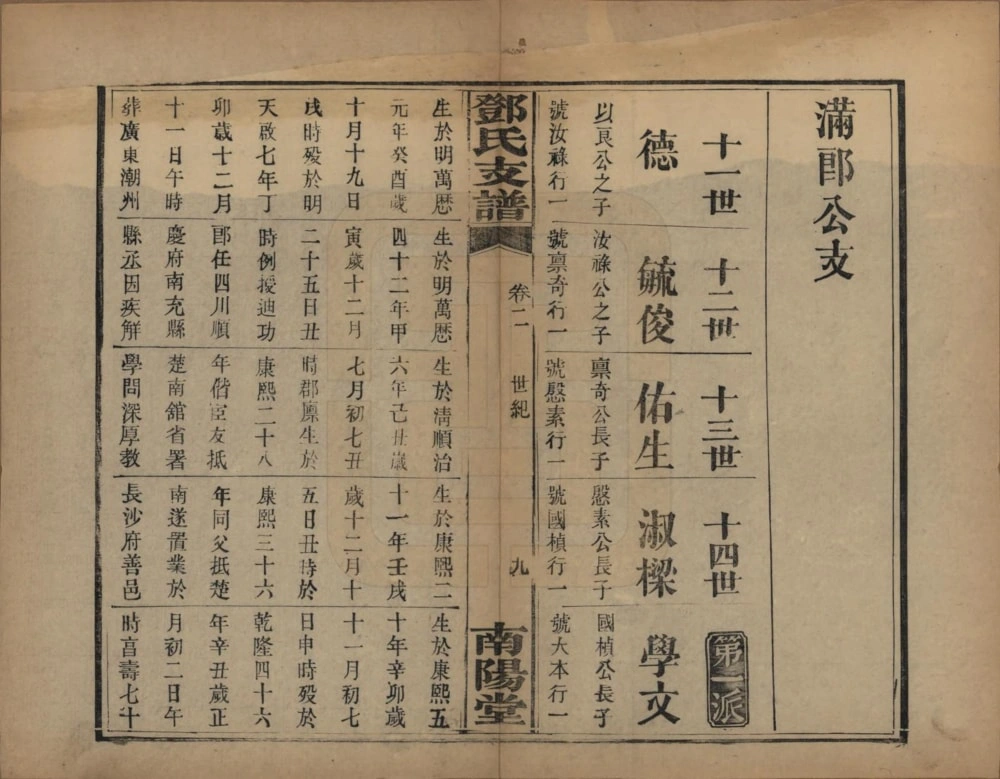 滿郎公支
十一世
十二世
十三世
十四世
第一派
德
毓俊
佑生
淑樑
學文
以良公之子
號汝祿行一
汝祿公之子
號稟奇行一
稟奇公長子
號慇素行一
慇素公長子
號國楨行一
國楨公長子
號大本行一
鄧氏支譜
卷二
世紀
九
南陽堂
生於明萬歷
元年癸酉歲
十月十九日
戌時歿於明
天啟七年丁
卯歲十二月
十一日午時
葬廣東潮州
生於明萬歷
四十二年甲
寅歲十二月
二十五日丑
時例授迪功
郎任四川順
慶府南充縣
縣丞因疾解
生於淸順治
六年己丑歲
七月初七丑
時郡廩生於
康熙二十八
年偕宦友抵
楚南舘省署
學問深厚教
生於康熙二
十一年壬戌
歲十二月十
五日丑時於
康熙三十六
年同父抵楚
南遂置業於
長沙府善邑
生於康熙五
十年辛卯歲
十一月初七
日申時歿於
乾隆四十六
年辛丑歲正
月初二日午
時亯壽七十